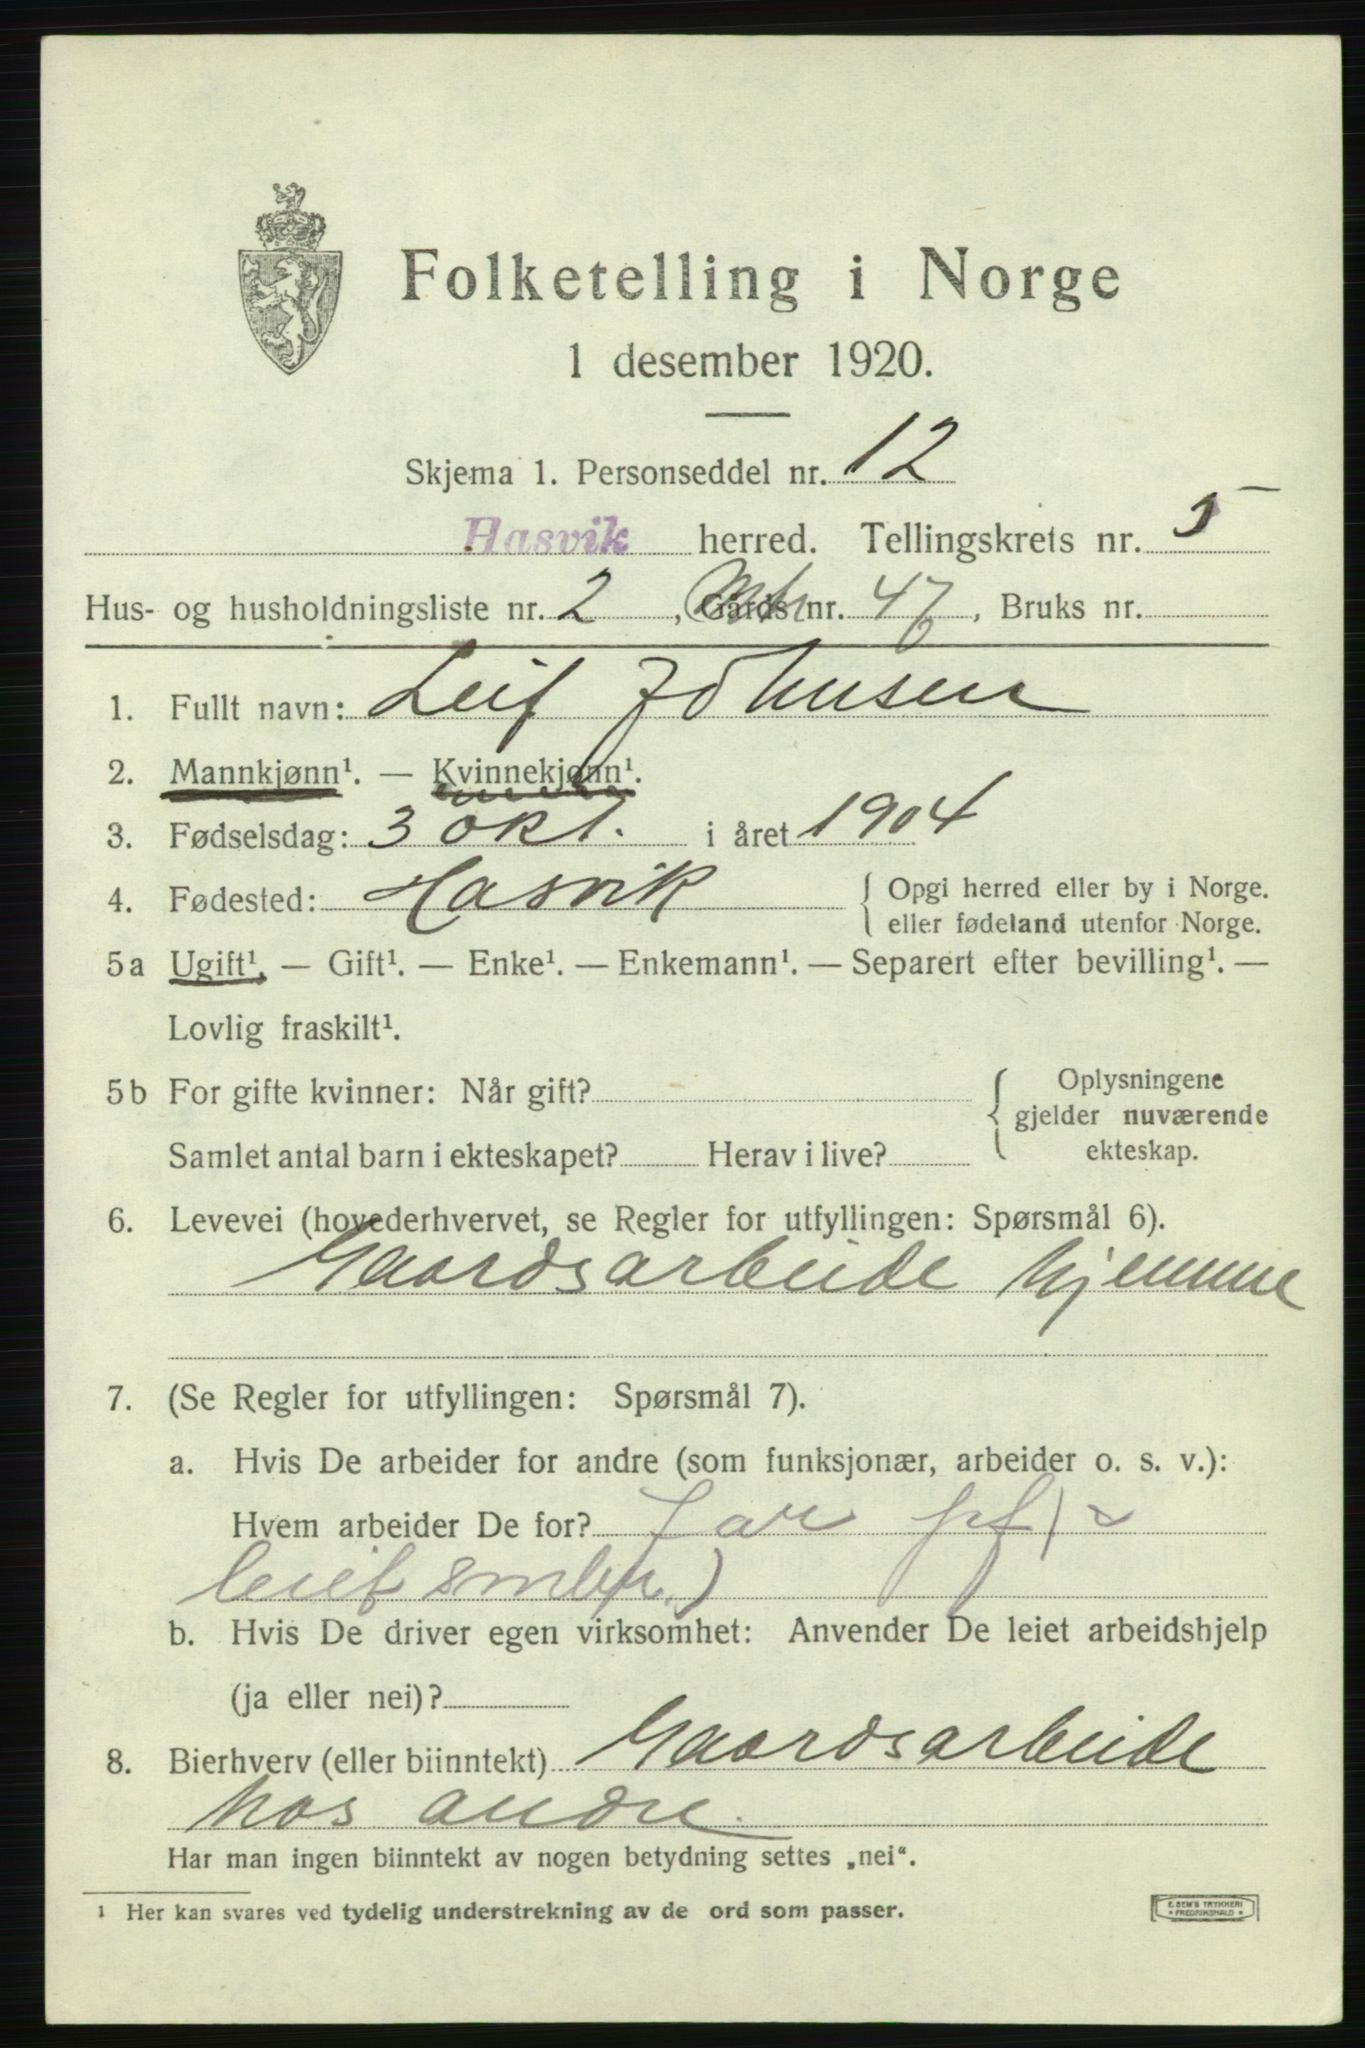 Folketelling i Norge
1 desember 1920.
Skjema 1. Personseddel nr. 12
Hasvik herred. Tellingskrets nr. 5
Hus- og husholdningsliste nr. 2, Gards nr. 47, Bruks nr.
1. Fullt navn: Leif Johnsen
2. Mannkjønn¹. — Kvinnekjønn¹.
3. Fødselsdag: 3 okt. i året 1904
4. Fødested: Hasvik { Opgi herred eller by i Norge.
eller fødeland utenfor Norge.
5a Ugift¹. — Gift¹. — Enke¹. — Enkemann¹. — Separert efter bevilling¹. —
Lovlig fraskilt¹.
5b For gifte kvinner: Når gift?
Samlet antal barn i ekteskapet? Herav i live?
{ Oplysningene
gjelder nuværende
ekteskap.
6. Levevei (hovederhvervet, se Regler for utfyllingen: Spørsmål 6).
Gaardsarbeide hjemme
7. (Se Regler for utfyllingen: Spørsmål 7).
a. Hvis De arbeider for andre (som funksjonær, arbeider o. s. v.):
Hvem arbeider De for? Far
b. Hvis De driver egen virksomhet: Anvender De leiet arbeidshjelp
(ja eller nei)?
8. Bierhverv (eller biinntekt) Gaardsarbeide
hos andre.
Har man ingen biinntekt av nogen betydning settes „nei".
¹ Her kan svares ved tydelig understrekning av de ord som passer.
E. SEM'S TRYKKERI
FREDRIKSHALD